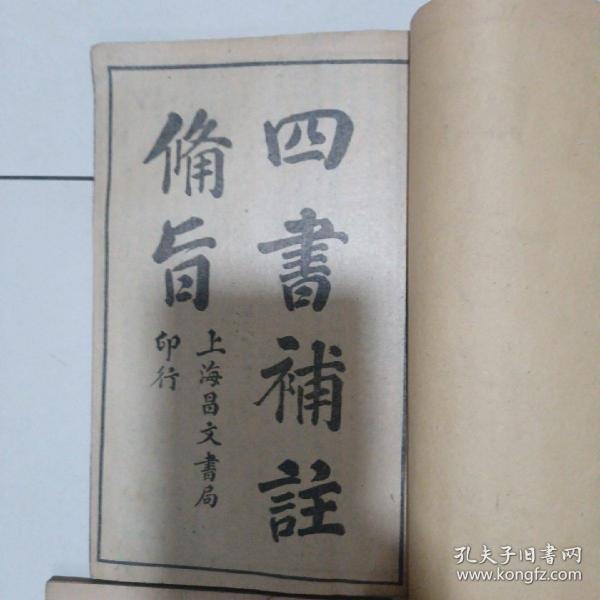 四書補註
備旨
上海昌文書局
印行
孔夫子旧書网
www.kongfz.com